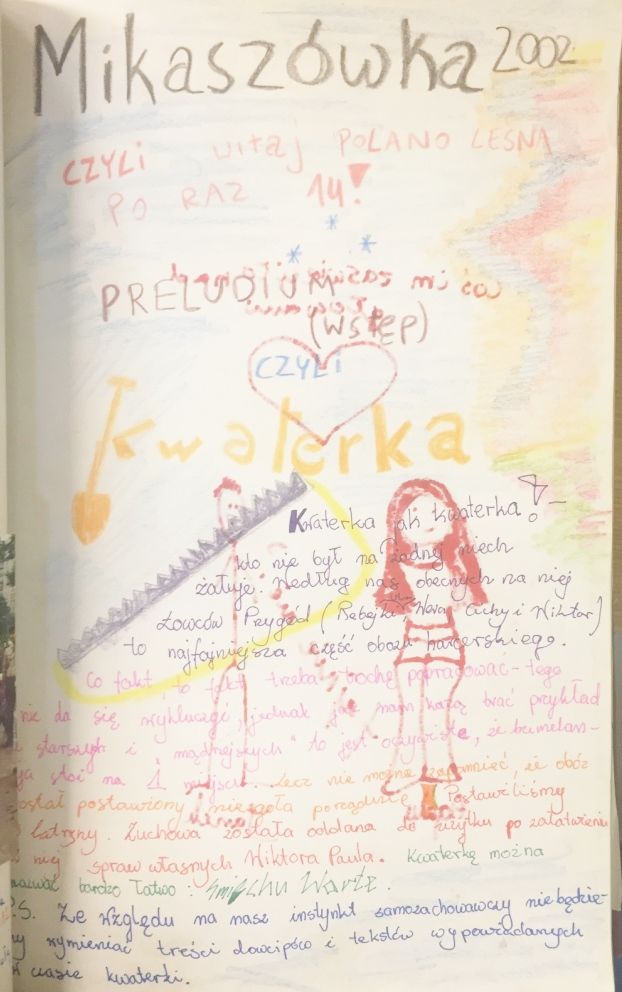 Mikaszówka 2002
CZYLI witaj POLANO LEŚNA
PO RAZ 14!
PRELUDIUM
(wstęp)
CZYLI
Kwaterka
Kwaterka jak kwaterka!
kto nie był na żadnej niech
żałuje. Według nas obecnych na niej
Łowców Przygód (Rebejki, Cichy i Wiktor)
to najfajniejsza część obozu harcerskiego.
Co fakt, to fakt trzeba trochę popracować - tego
nie da się wykluczyć, jednak jak nam każą brać przykład
starszych i "mądrzejszych" to jest oczywiste, że bumelan-
ja stoi na 1 miejscu. Lecz nie można zapomnieć, że obóz
ostał postawiony Postawiliśmy
latryny. Zuchowa została oddana do użytku po załatwieniu
w niej spraw własnych Wiktora Paula. Kwaterkę można
nazwać bardzo łatwo: śmiechu Warte.
P.S. Ze względu na nasz instynkt samozachowawczy nie będzie-
my wymieniać treści dowcipów i tekstów wypowiadanych
w czasie kwaterki.